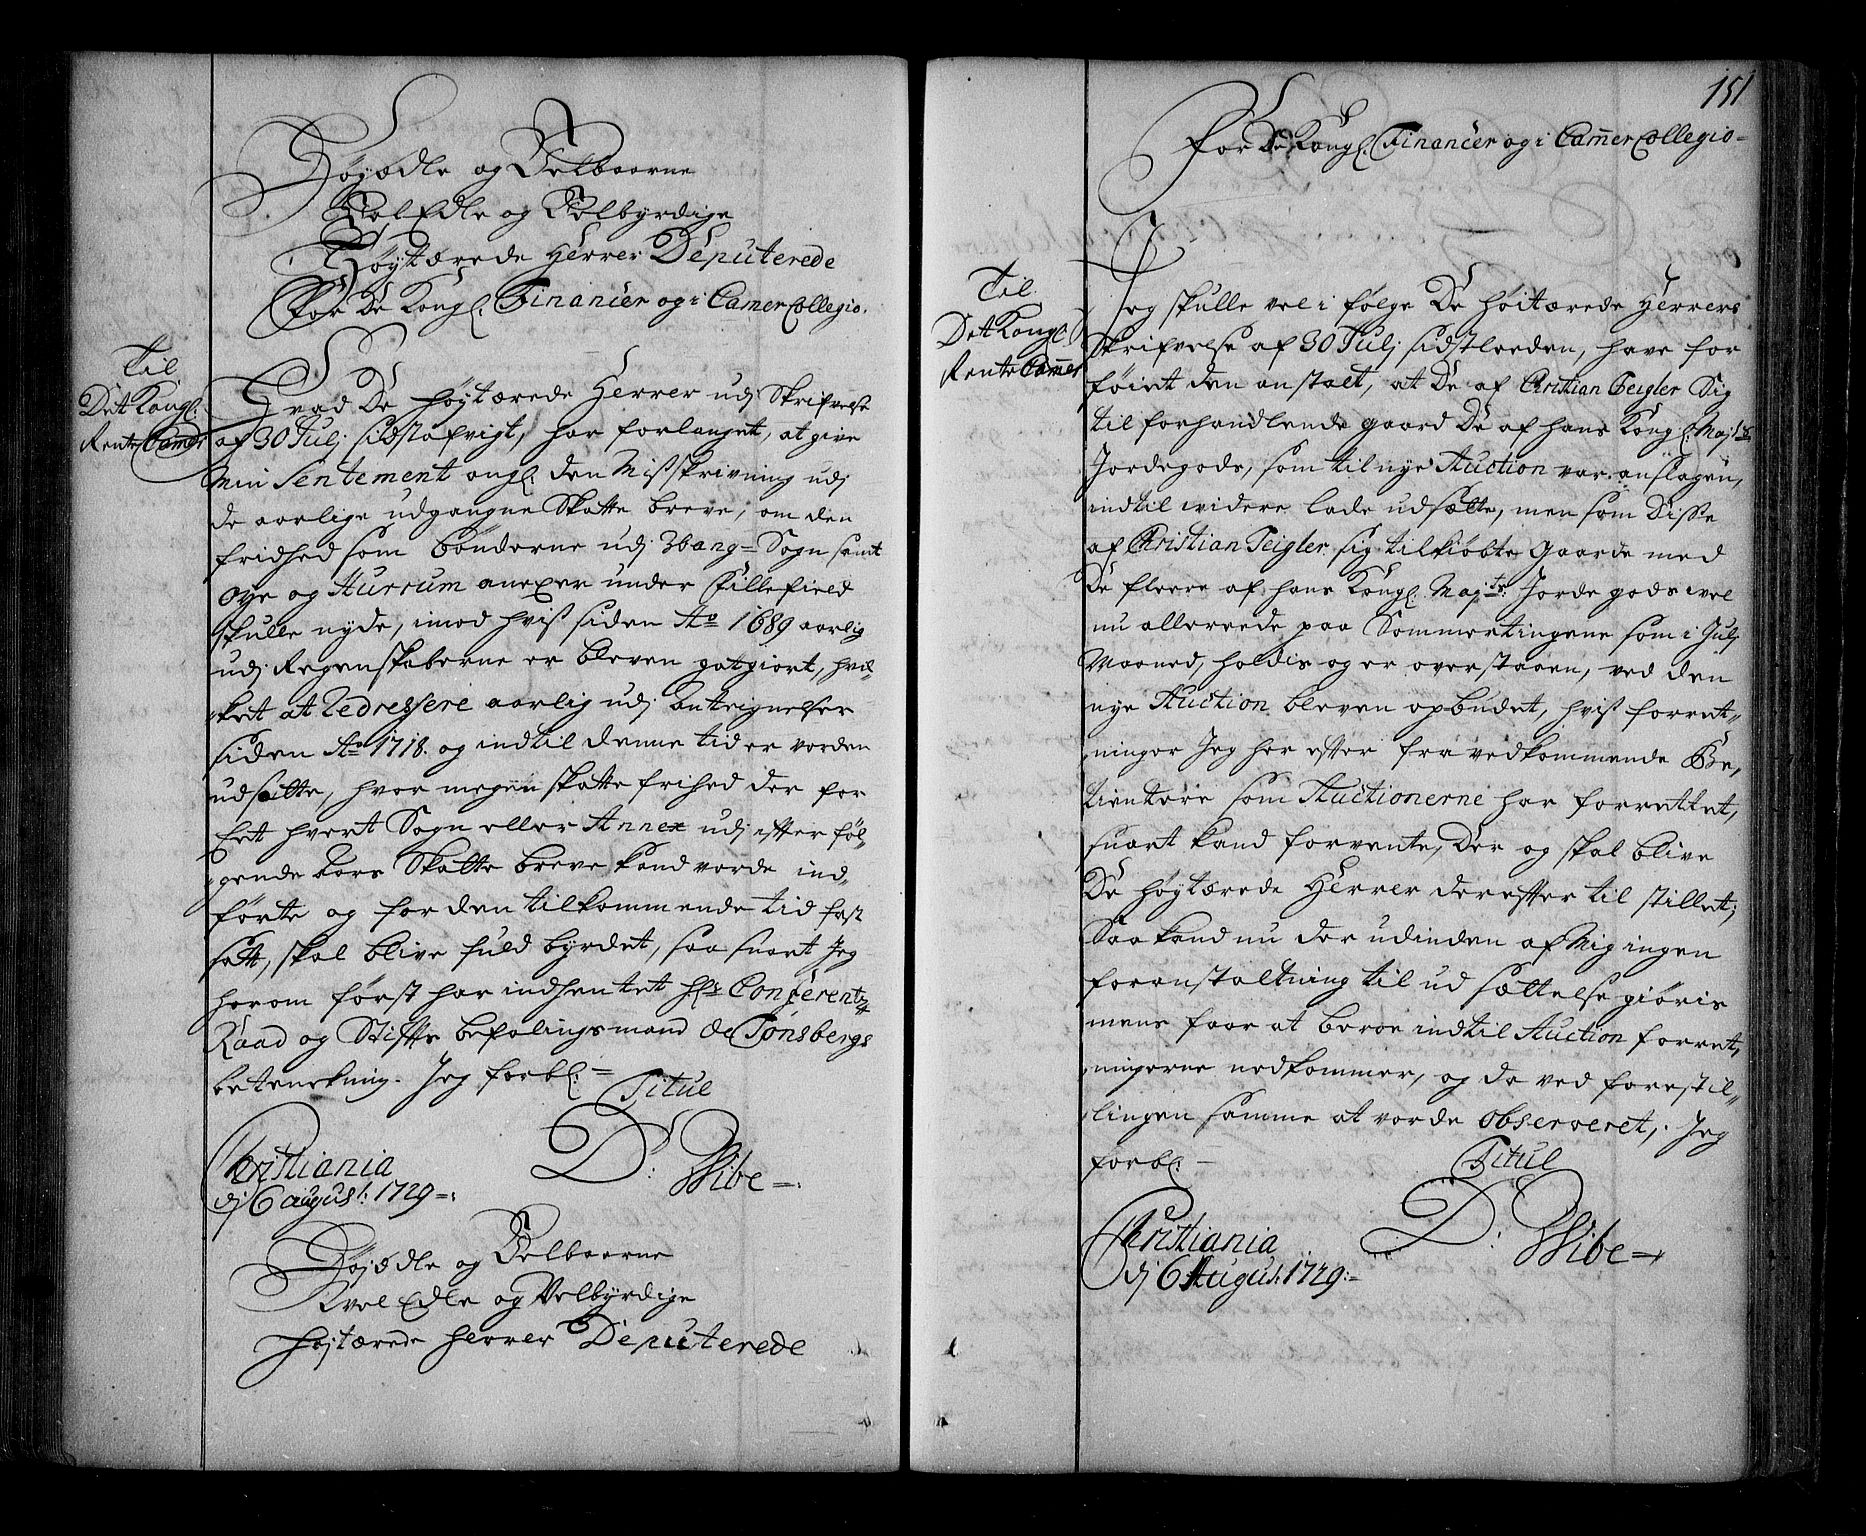 Høyædle og Velbaarne
VelEdle og Velbyrdige
Høytærede Herrer Deputerede
For De Kongl. Financer og i CamerCollegio.
Til
Det Kongl.
RenteCamer
Hvad De høytærede Herrer udj Skrifvelse
af 30 Julj sidstafvigt, har forlanget, at give
Min Sentement angl. den Misskrivning udj
de aarlige udgangne Skatte breve, om den
fridhed som bønderne udj Wang = Sogn samt
Oye og Hurrum anexer under Fillefield
skulle nyde, imod hvis siden Ao 1689 aarlig
udj Regenskaberne er bleven gotgiort, hvil-
ket at Redressere aarlig udj Anteignelser
siden Ao 1718. og indtil denne tid er vorden
udsatte, hvor megen skatte frihed der for
Eet hvert Sogn eller Annex udj efterføl-
gende Aars Skatte breve kand vorde ind-
førte og for den tilkommende tid fast
satt, skal blive fuld byrdet, saa snart Jeg
herom først har indhentet Hrs Conferentz
Raad og Stifts befalingsmand de Tønsbergs
betenckning. Jeg forbl: =
Titul
D: Wibe =
Christiania
dj 6 august: 1729 =
Højædle og Velbaarne
Vel Edle og Velbyrdige
Højtærede Herrer Deputerede
151
For De Kongl. Financer og i CamerCollegio =
Til
Det Kongl.
RenteCamer
Jeg skulle vel i følge De høitærede Herrers
Skrifvelse af 30 Julj sidstleeden, have for
føiet den anstalt, at De af Christian Teigler Sig
til forhandlende gaard De af hans Kongl. Majts
Jordegods, som til nye Auction var anslagen,
indtil widere lade udsætte, men som Disse
af Christian Teigler sig tilkiøbte gaarde med
De fleere af hans Kongl. Majts Jorde gods wel
nu allereede paa Sommertingene som i Julj
Maaned, holdis og er overstaaen, ved den
nye Auction bleven opbudet, hvis forret-
ninger Jeg her efter fra vedkommende Be-
tientere som Auctionerne har forrettet,
snart kand forvente, Der og skal blive
De høytærede Herrer derefter til stillet;
Saa kand nu der udinden af Mig ingen
foranstaltning til ud sættelse giøris
mens faar at beroe indtil Auction forret-
ningerne nedkommer, og da ved forestil-
lingen samme at vorde observeret, Jeg
forbl: =
Titul
D: Wibe =
Christiania
dj 6 August: 1729: =